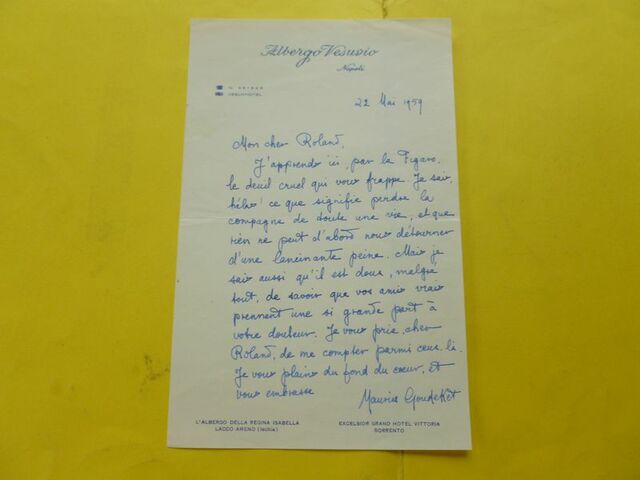 Albergo Vesuvio
Napoli
VESUVHOTEL
22 Mai 1959
Mon cher Roland,
J'apprends ici, par le Figaro,
le deuil cruel qui vous frappe. Je sais,
hélas! ce que signifie perdre la
compagne de toute une vie, et que
rien ne peut d'abord nous détourner
d'une lancinante peine. Mais je
sais aussi qu'il est doux, malgré
tout, de savoir que vos amis vrais
prennent une si grande part à
votre douleur. Je vous prie, cher
Roland, de me compter parmi ceux-là.
Je vous plains du fond du cœur, et
vous embrasse
Maurice Goudeket
L'ALBERGO DELLA REGINA ISABELLA
LACCO AMENO (Ischia)
EXCELSIOR GRAND HOTEL VITTORIA
SORRENTO